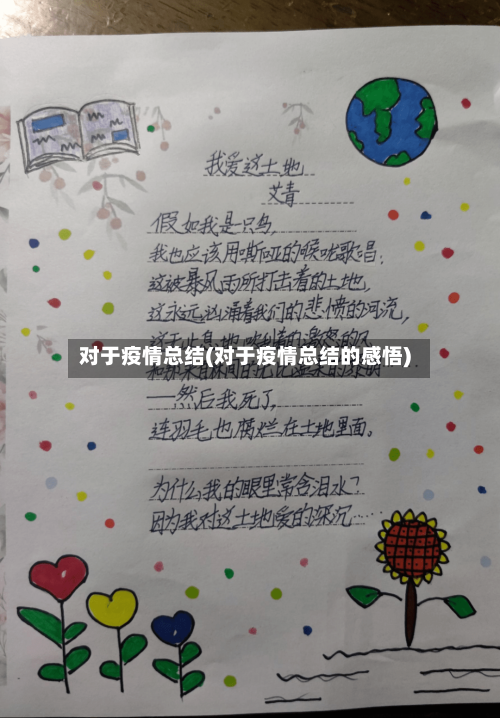 我爱这土地
艾青
假如我是只鸟,
我也应该用嘶哑的喉咙歌唱:
这被暴风雨所打击着的土地,
这永远汹涌着我们的悲愤的河流,
对于疫情总结(对于疫情总结的感悟)
——然后我死了,
连羽毛也腐烂在土地里面。
为什么我的眼里常含泪水?
因为我对这土地爱的深沉……